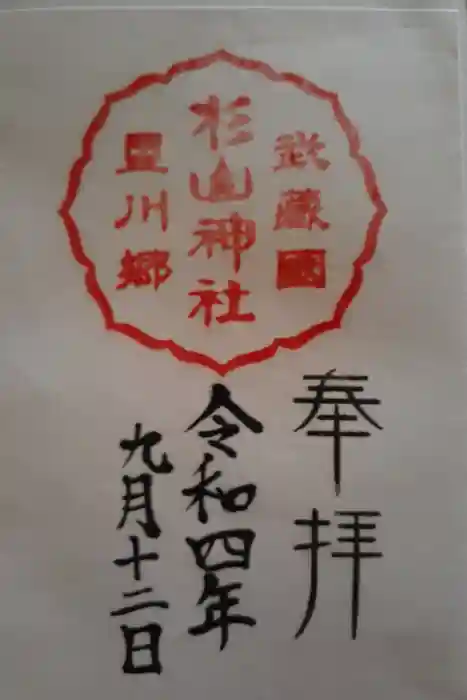 武藏國
杉山神社
星川郷
奉拝
令和四年
九月十二日